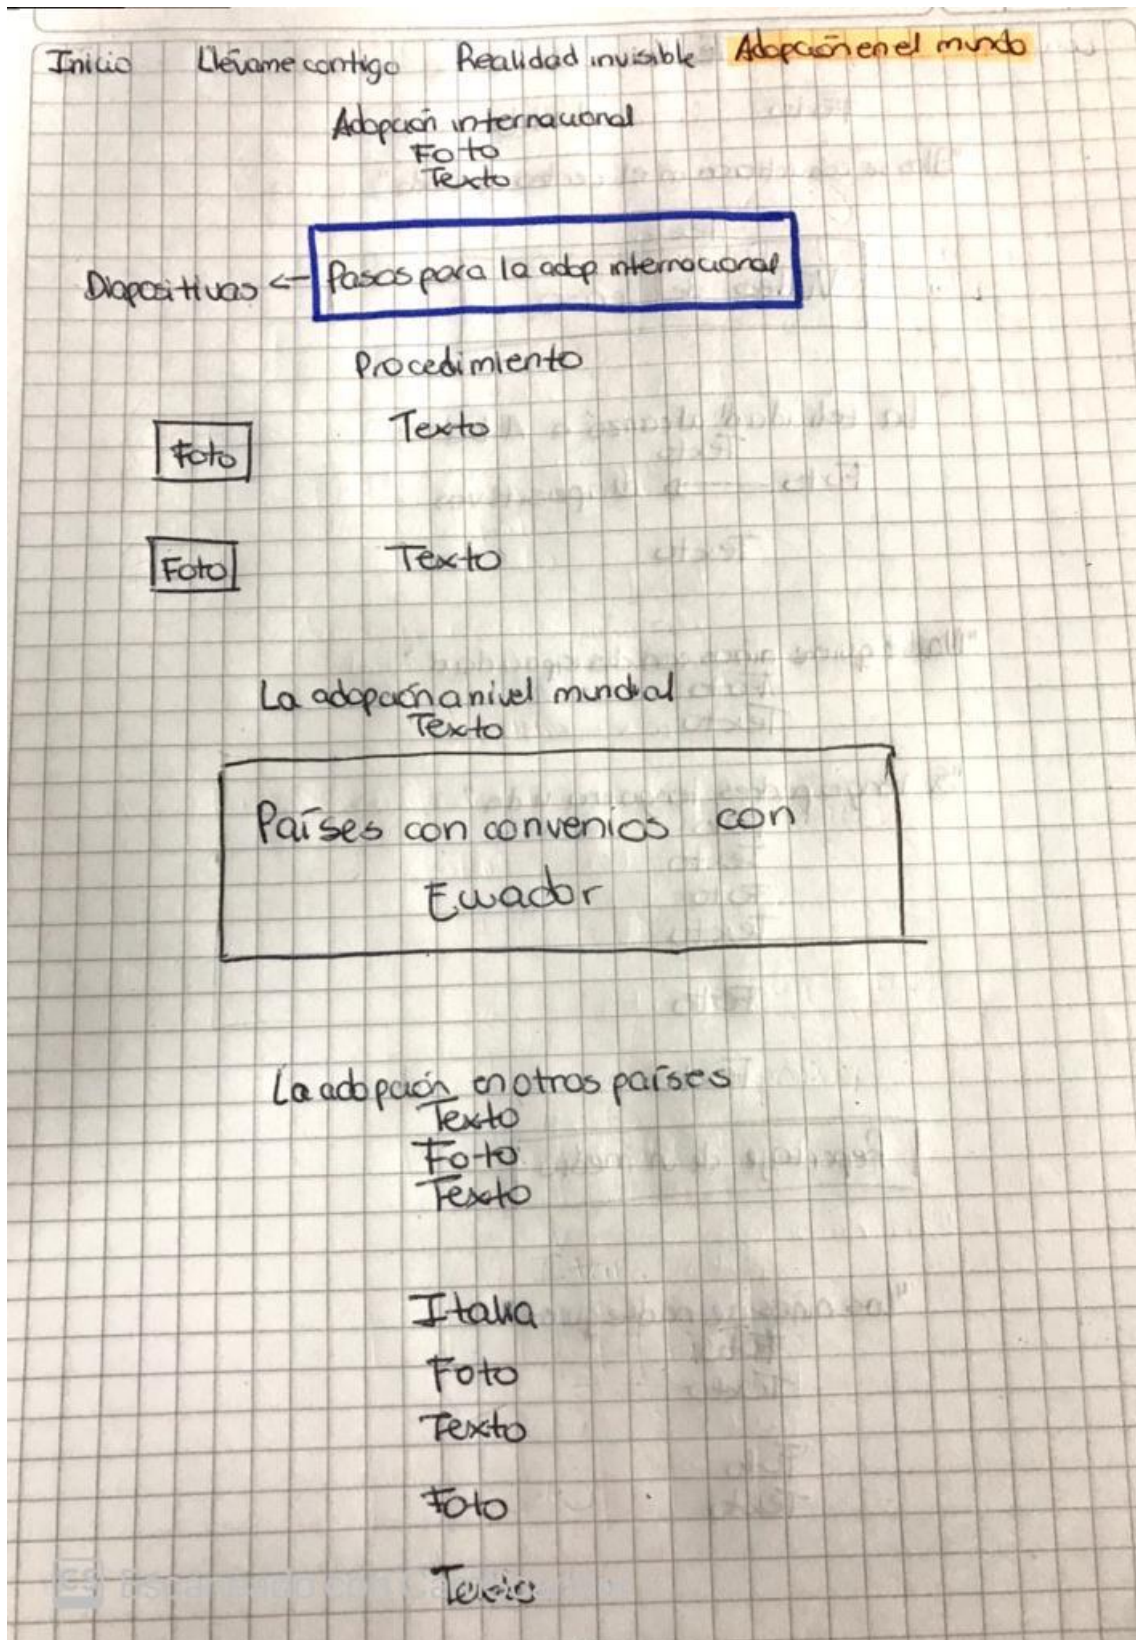 Inicio Llévame contigo Realidad invisible Adopción en el mundo
Adopción internacional
Foto
Texto
Diapositivas ← Pasos para la adop internacional
Procedimiento
Foto Texto
Foto Texto
La adopción a nivel mundial
Texto
Países con convenios con
Ecuador
La adopción en otros países
Texto
Foto
Texto
Italia
Foto
Texto
Foto
Texto